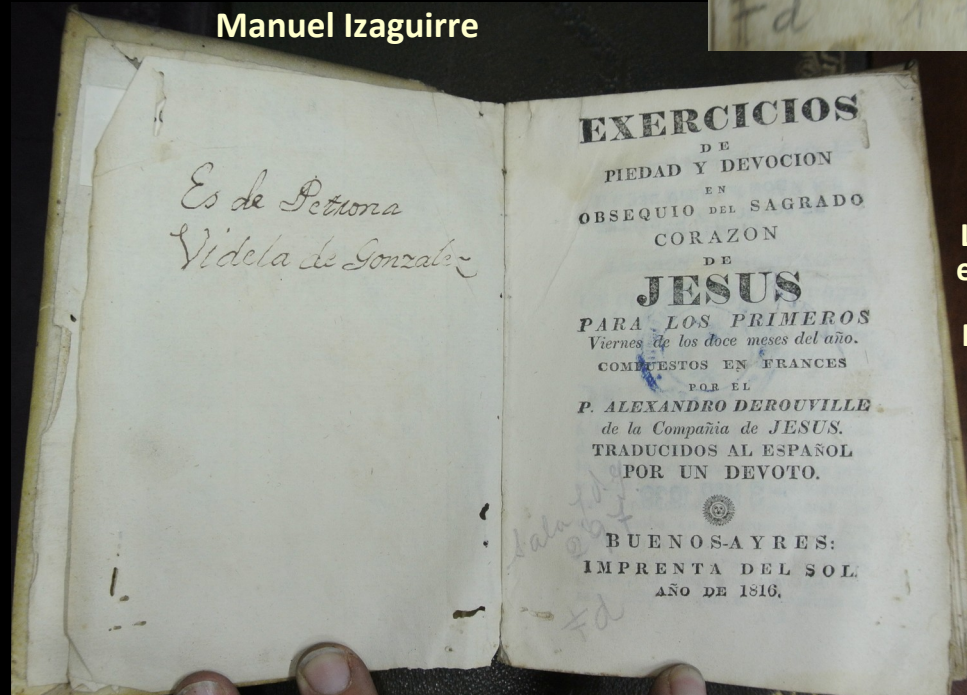 Manuel Izaguirre
Fd
Es de Petrona
Videla de Gonzalez
EXERCICIOS
DE
PIEDAD Y DEVOCION
EN
OBSEQUIO DEL SAGRADO
CORAZON
DE
JESUS
PARA LOS PRIMEROS
Viernes de los doce meses del año.
COMPUESTOS EN FRANCES
POR EL
P. ALEXANDRO DEROUVILLE
de la Compañia de JESUS.
TRADUCIDOS AL ESPAÑOL
POR UN DEVOTO.
BUENOS-AYRES:
IMPRENTA DEL SOL.
AÑO DE 1816.
Fd